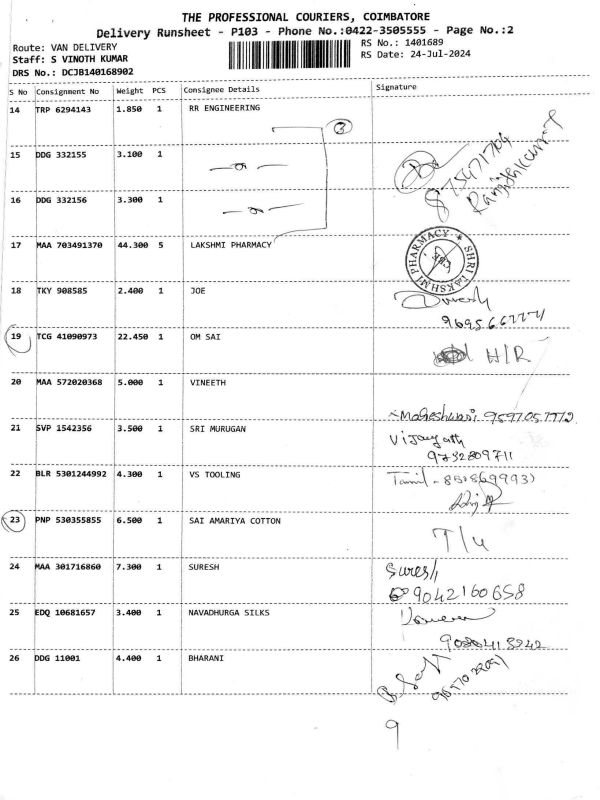 THE PROFESSIONAL COURIERS, COIMBATORE
Delivery Runsheet - P103 - Phone No.:0422-3505555 - Page No.:2
Route: VAN DELIVERY
RS No.: 1401689
Staff: S VINOTH KUMAR
RS Date: 24-Jul-2024
DRS No.: DCJB140168902
S No Consignment No Weight PCS Consignee Details Signature
14 TRP 6294143 1.850 1 RR ENGINEERING
3
15 DDG 332155 3.100 1
Ranjithkumar
16 DDG 332156 3.300 1
17 MAA 703491370 44.300 5 LAKSHMI PHARMACY
SHRI LAKSHMI PHARMACY
18 TKY 908585 2.400 1 JOE
19 TCG 41090973 22.450 1 OM SAI H/R
20 MAA 572020368 5.000 1 VINEETH
Maheshwari
21 SVP 1542356 3.500 1 SRI MURUGAN
9732809711
22 BLR 5301244992 4.300 1 VS TOOLING Tamil
23 PNP 530355855 6.500 1 SAI AMARIYA COTTON
T/u
24 MAA 301716860 7.300 1 SURESH Suresh
9042160658
25 EDQ 10681657 3.400 1 NAVADHURGA SILKS
26 DDG 11001 4.400 1 BHARANI
9